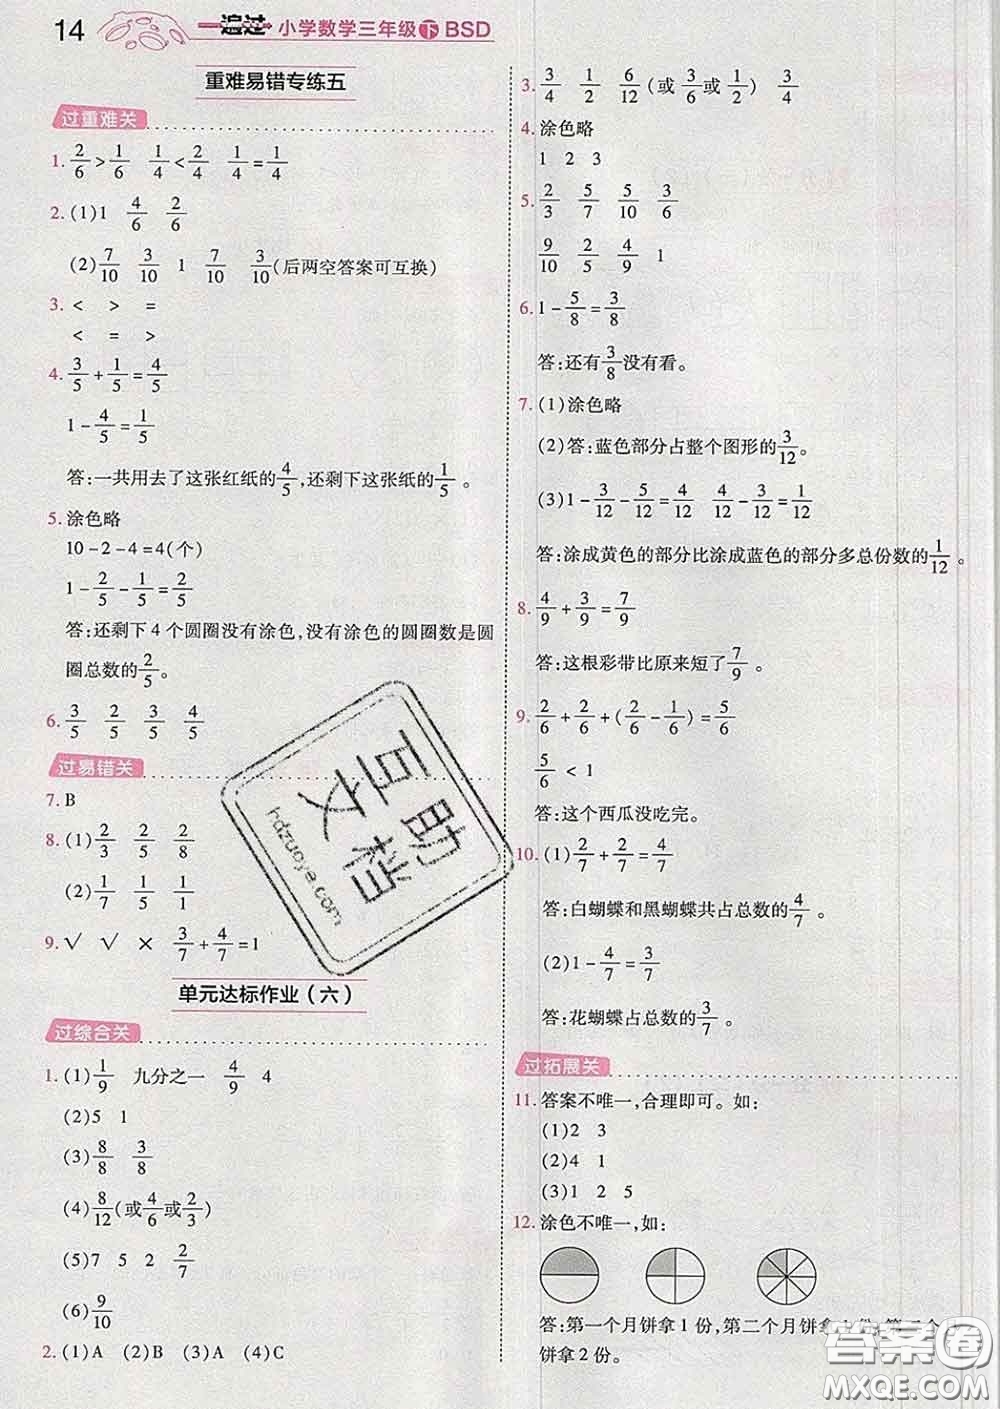 14 一遍过 小学数学三年级 下 BSD
重难易错专练五
过重难关
1. 2/6 > 1/6  1/4 < 2/4  1/4 = 1/4
2. (1)1  4/6  2/6
(2) 7/10  3/10  1  7/10  3/10 (后两空答案可互换)
3. <  >  =
<  =  >
4. 3/5 + 1/5 = 4/5
1 - 4/5 = 1/5
答:一共用去了这张红纸的4/5,还剩下这张红纸的1/5。
5. 涂色略
10-2-4=4(个)
1 - 2/5 - 1/5 = 2/5
答:还剩下4个圆圈没有涂色,没有涂色的圆圈数是圆
圈总数的2/5。
6. 3/5  2/5  3/5  4/5
过易错关
7. B
8. (1) 2/3  2/5  2/8
(2) 1/7  1/5  1/1
9. √  √  ×  3/7 + 4/7 = 1
单元达标作业(六)
过综合关
1. (1) 1/9  九分之一  4/9  4
(2)5  1
(3) 8/8  3/8
(4) 8/12 (或4/6或2/3)
(5)7  5  2  2/7
(6) 9/10
2. (1)A  (2)B  (3)A  (4)C
3. 3/4  1/2  6/12 (或3/6或1/2)  3/4
4. 涂色略
1  2  3
5. 2/3  5/7  5/10  3/6
9/10  2/5  4/9  1
6. 1 - 5/8 = 3/8
答:还有3/8没有看。
7. (1)涂色略
(2)答:蓝色部分占整个图形的3/12。
(3) 1 - 3/12 - 5/12 = 4/12  4/12 - 3/12 = 1/12
答:涂成黄色的部分比涂成蓝色的部分多总份数的1/12。
8. 4/9 + 3/9 = 7/9
答:这根彩带比原来短了7/9。
9. 2/6 + 2/6 + (2/6 - 1/6) = 5/6
5/6 < 1
答:这个西瓜没吃完。
10. (1) 2/7 + 2/7 = 4/7
答:白蝴蝶和黑蝴蝶共占总数的4/7。
(2) 1 - 4/7 = 3/7
答:花蝴蝶占总数的3/7。
过拓展关
11. 答案不唯一,合理即可。如:
(1)2  3
(2)4  1
(3)1  2  5
12. 涂色不唯一,如:
答:第一个月饼拿1份,第二个月饼拿1份,第三个月
饼拿2份。
百文
助档
hdzuoye.com
答案圈
MXQE.COM